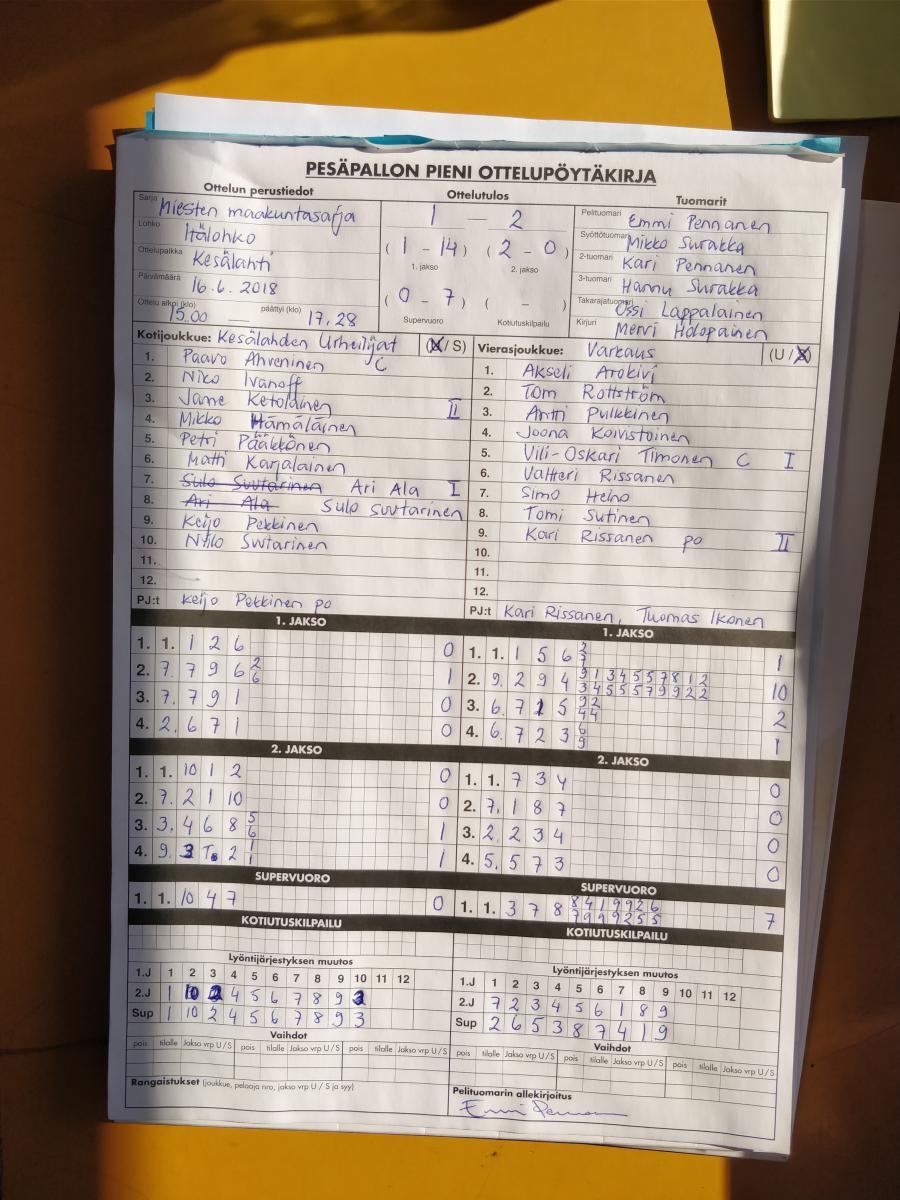 PESÄPALLON PIENI OTTELUPÖYTÄKIRJA
Ottelun perustiedot
Sarja Miesten maakuntasarja
Lohko Itälohko
Ottelupaikka Kesälahti
Päivämäärä 16.6.2018
Ottelu alkoi (klo) 15.00 päättyi (klo) 17.28
Ottelutulos
1 — 2
(1 - 14) (2 - 0)
1. jakso 2. jakso
(0 - 7) ( - )
Supervuoro Kotiutuskilpailu
Tuomarit
Pelituomari Emmi Pennanen
Syöttötuomari Mikko Surakka
2-tuomari Kari Pennanen
3-tuomari Hannu Surakka
Takarajatuomari Ossi Lappalainen
Kirjuri Mervi Holopainen
Kotijoukkue: Kesälahden Urheilijat (X / S)
1. Paavo Ahveninen C
2. Niko Ivanoff
3. Janne Ketolainen II
4. Mikko Hämäläinen
5. Petri Pääkkönen
6. Matti Karjalainen
7. Sulo Suutarinen Ari Ala I
8. Ari Ala Sulo Suutarinen
9. Keijo Pekkinen
10. Niilo Suutarinen
11.
12.
PJ:t Keijo Pekkinen po
Vierasjoukkue: Varkaus (U / X)
1. Akseli Arokivi
2. Tom Rottström
3. Antti Pulkkinen
4. Joona Koivistoinen
5. Vili-Oskari Timonen C I
6. Valtteri Rissanen
7. Simo Heino
8. Tomi Sutinen
9. Kari Rissanen po II
10.
11.
12.
PJ:t Kari Rissanen, Tuomas Ikonen
1. JAKSO
1. 1. 1 2 6 0
2. 7. 7 9 6 2 6 1
3. 7. 7 9 1 0
4. 2. 6 7 1 0
1. JAKSO
1. 1. 1 5 6 2 7 1
2. 9. 2 9 4 9 1 3 4 5 5 7 8 1 2
3 4 5 5 5 7 9 9 2 2 10
3. 6. 7 1 5 9 2
4 4 2
4. 6. 7 2 3 6 9 1
2. JAKSO
1. 1. 10 1 2 0
2. 7. 2 1 10 0
3. 3. 4 6 8 5 6 1
4. 9. 3 T. 2 1 1 1
2. JAKSO
1. 1. 7 3 4 0
2. 7. 1 8 7 0
3. 2. 2 3 4 0
4. 5. 5 7 3 0
SUPERVUORO
1. 1. 10 4 7 0
SUPERVUORO
1. 1. 3 7 8 8 4 1 9 9 2 6
7 9 9 9 2 5 5 7
KOTIUTUSKILPAILU
KOTIUTUSKILPAILU
Lyöntijärjestyksen muutos
1.J 1 2 3 4 5 6 7 8 9 10 11 12
2.J 1 10 2 4 5 6 7 8 9 3
Sup 1 10 2 4 5 6 7 8 9 3
Lyöntijärjestyksen muutos
1.J 1 2 3 4 5 6 7 8 9 10 11 12
2.J 7 2 3 4 5 6 1 8 9
Sup 2 6 5 3 8 7 4 1 9
Vaihdot
pois tilalle Jakso vrp U/S pois tilalle Jakso vrp U/S pois tilalle Jakso vrp U/S
Vaihdot
pois tilalle Jakso vrp U/S pois tilalle Jakso vrp U/S pois tilalle Jakso vrp U/S
Rangaistukset (joukkue, pelaaja nro, jakso vrp U / S ja syy)
Pelituomarin allekirjoitus